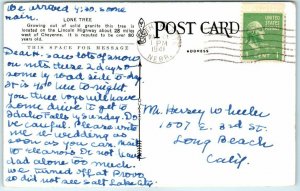 We arrived 4:30. some
rain.
LONE TREE
Growing out of solid granite this tree is
located on the Lincoln Highway about 28 miles
west of Cheyenne. It is reputed to be over 90
years old.
THIS SPACE FOR MESSAGE
POST CARD
ADDRESS
PM
1941
NEBR.
Dear H. Saw lots of snow
on mts these 2 days &
some by road side to-day.
It is 40 to night
you two boys will have
some drive to
Idaho Falls Sunday. Do
be careful. Please write
me re-wedding as
soon as you can. Mail
to clearons. Do not have
dad alone too much.
we turned off at Provo
so did not see Salt Lake City
Mr. Hersey Wheeler
1007 E. 3rd St.
Long Beach
Calif.